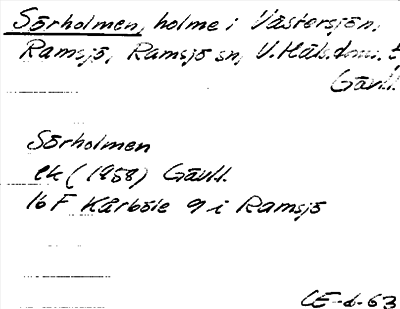 Sörholmen, holme i Västersjön,
Ramsjö, Ramsjö sn, V. Häls. dms. t,
Gävl.
Sörholmen
ek (1958) Gävl.
16 F Kårböle 9 i Ramsjö
CE-6-63